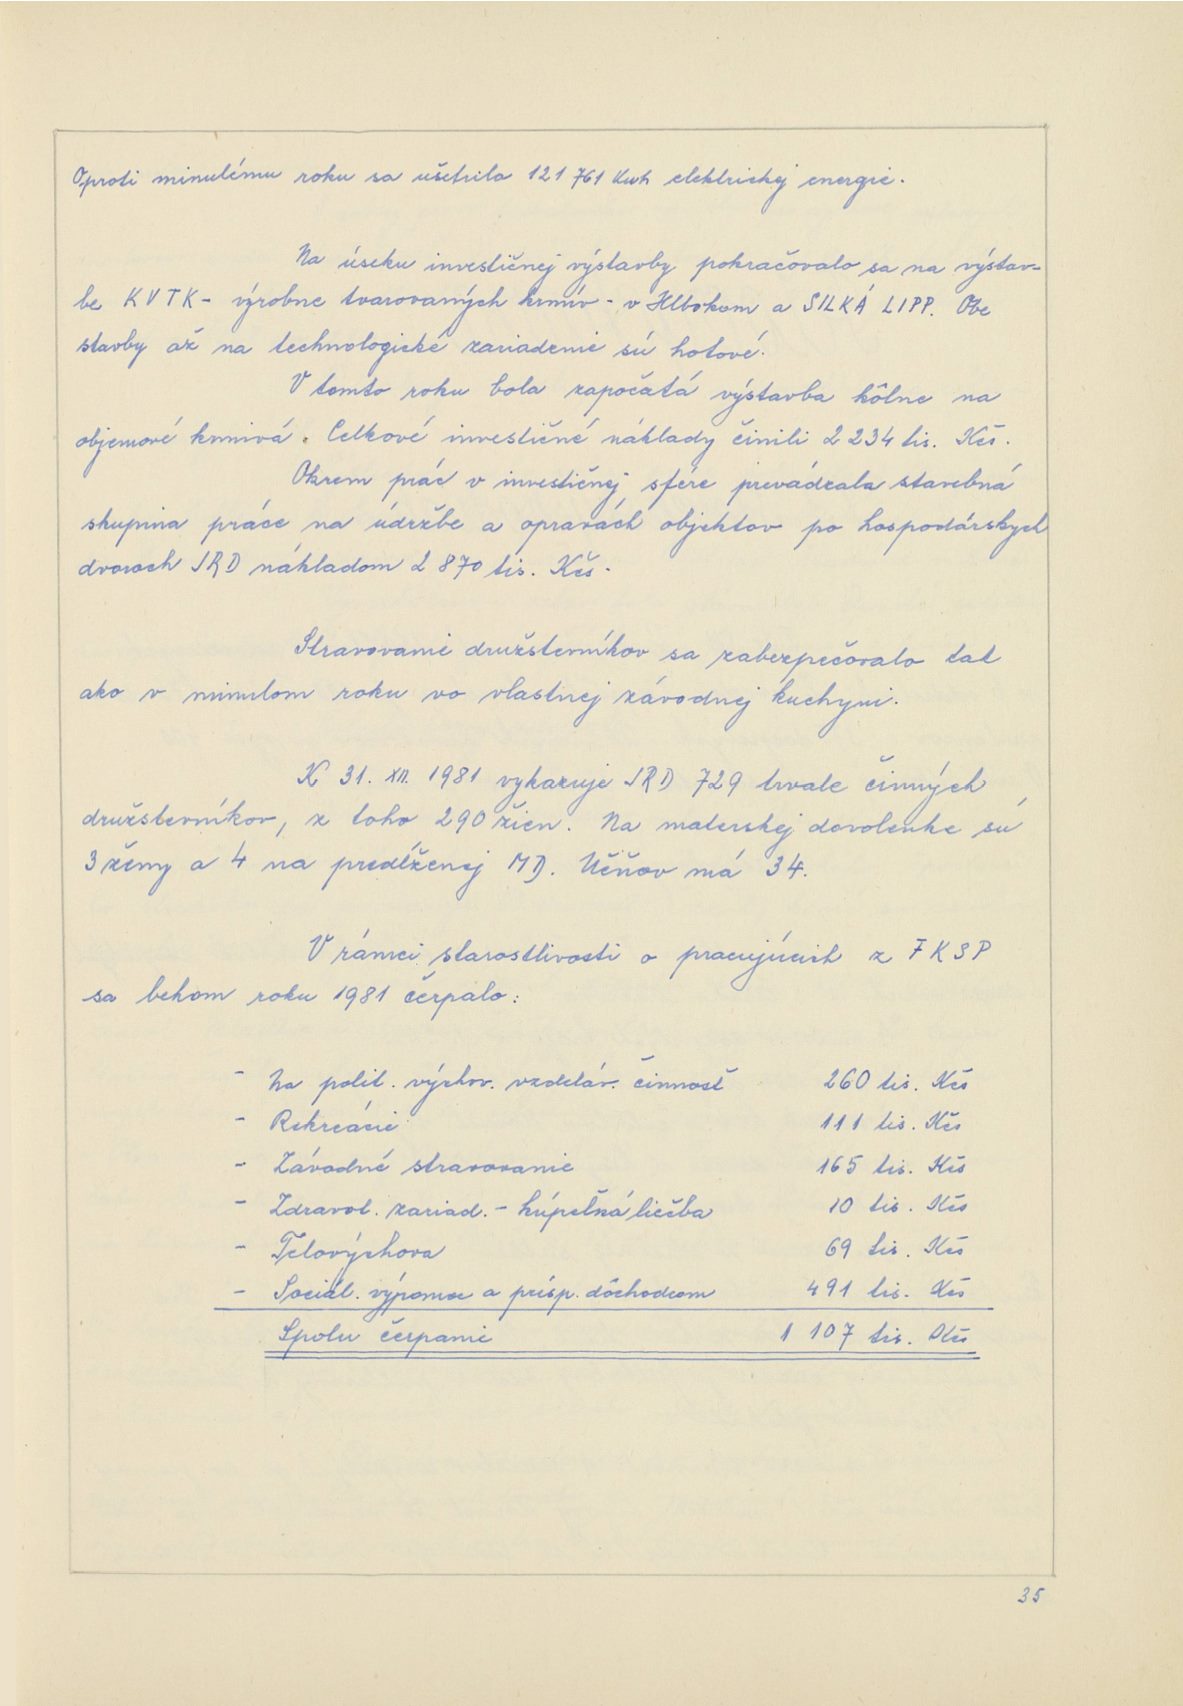 Oproti minulému roku sa ušetrilo 121 761 kwh elektrickej energie.
Na úseku investičnej výstavby pokračovalo sa na výstav-
be KVTK - výrobne tvarovaných krmív - v Hlbokom a SILKÁ LIPP. Obe
stavby až na technologické zariadenie sú hotové.
V tomto roku bola započatá výstavba kôlne na
objemové krmivá. Celkové investičné náklady činili 2 234 tis. Kčs.
Okrem prác v investičnej sfére prevádzala stavebná
skupina práce na údržbe a opravách objektov po hospodárskych
dvoroch JRD nákladom 2 870 tis. Kčs.
Stravovanie družstevníkov sa zabezpečovalo tak
ako v minulom roku vo vlastnej závodnej kuchyni.
K 31. XII. 1981 vykazuje JRD 729 trvale činných
družstevníkov, z toho 290 žien. Na materskej dovolenke sú
3 ženy a 4 na predĺženej MD. Učňov má 34.
V rámci starostlivosti o pracujúcich z FKSP
sa behom roku 1981 čerpalo:
- Na polit. výchov. vzdeláv. činnosť 260 tis. Kčs
- Rekreácie 111 tis. Kčs
- Závodné stravovanie 165 tis. Kčs
- Zdravot. zariad. - kúpeľná liečba 10 tis. Kčs
- Telovýchova 69 tis. Kčs
- Sociál. výpomoc a prísp. dôchodcom 491 tis. Kčs
Spolu čerpanie 1 107 tis. Kčs
35